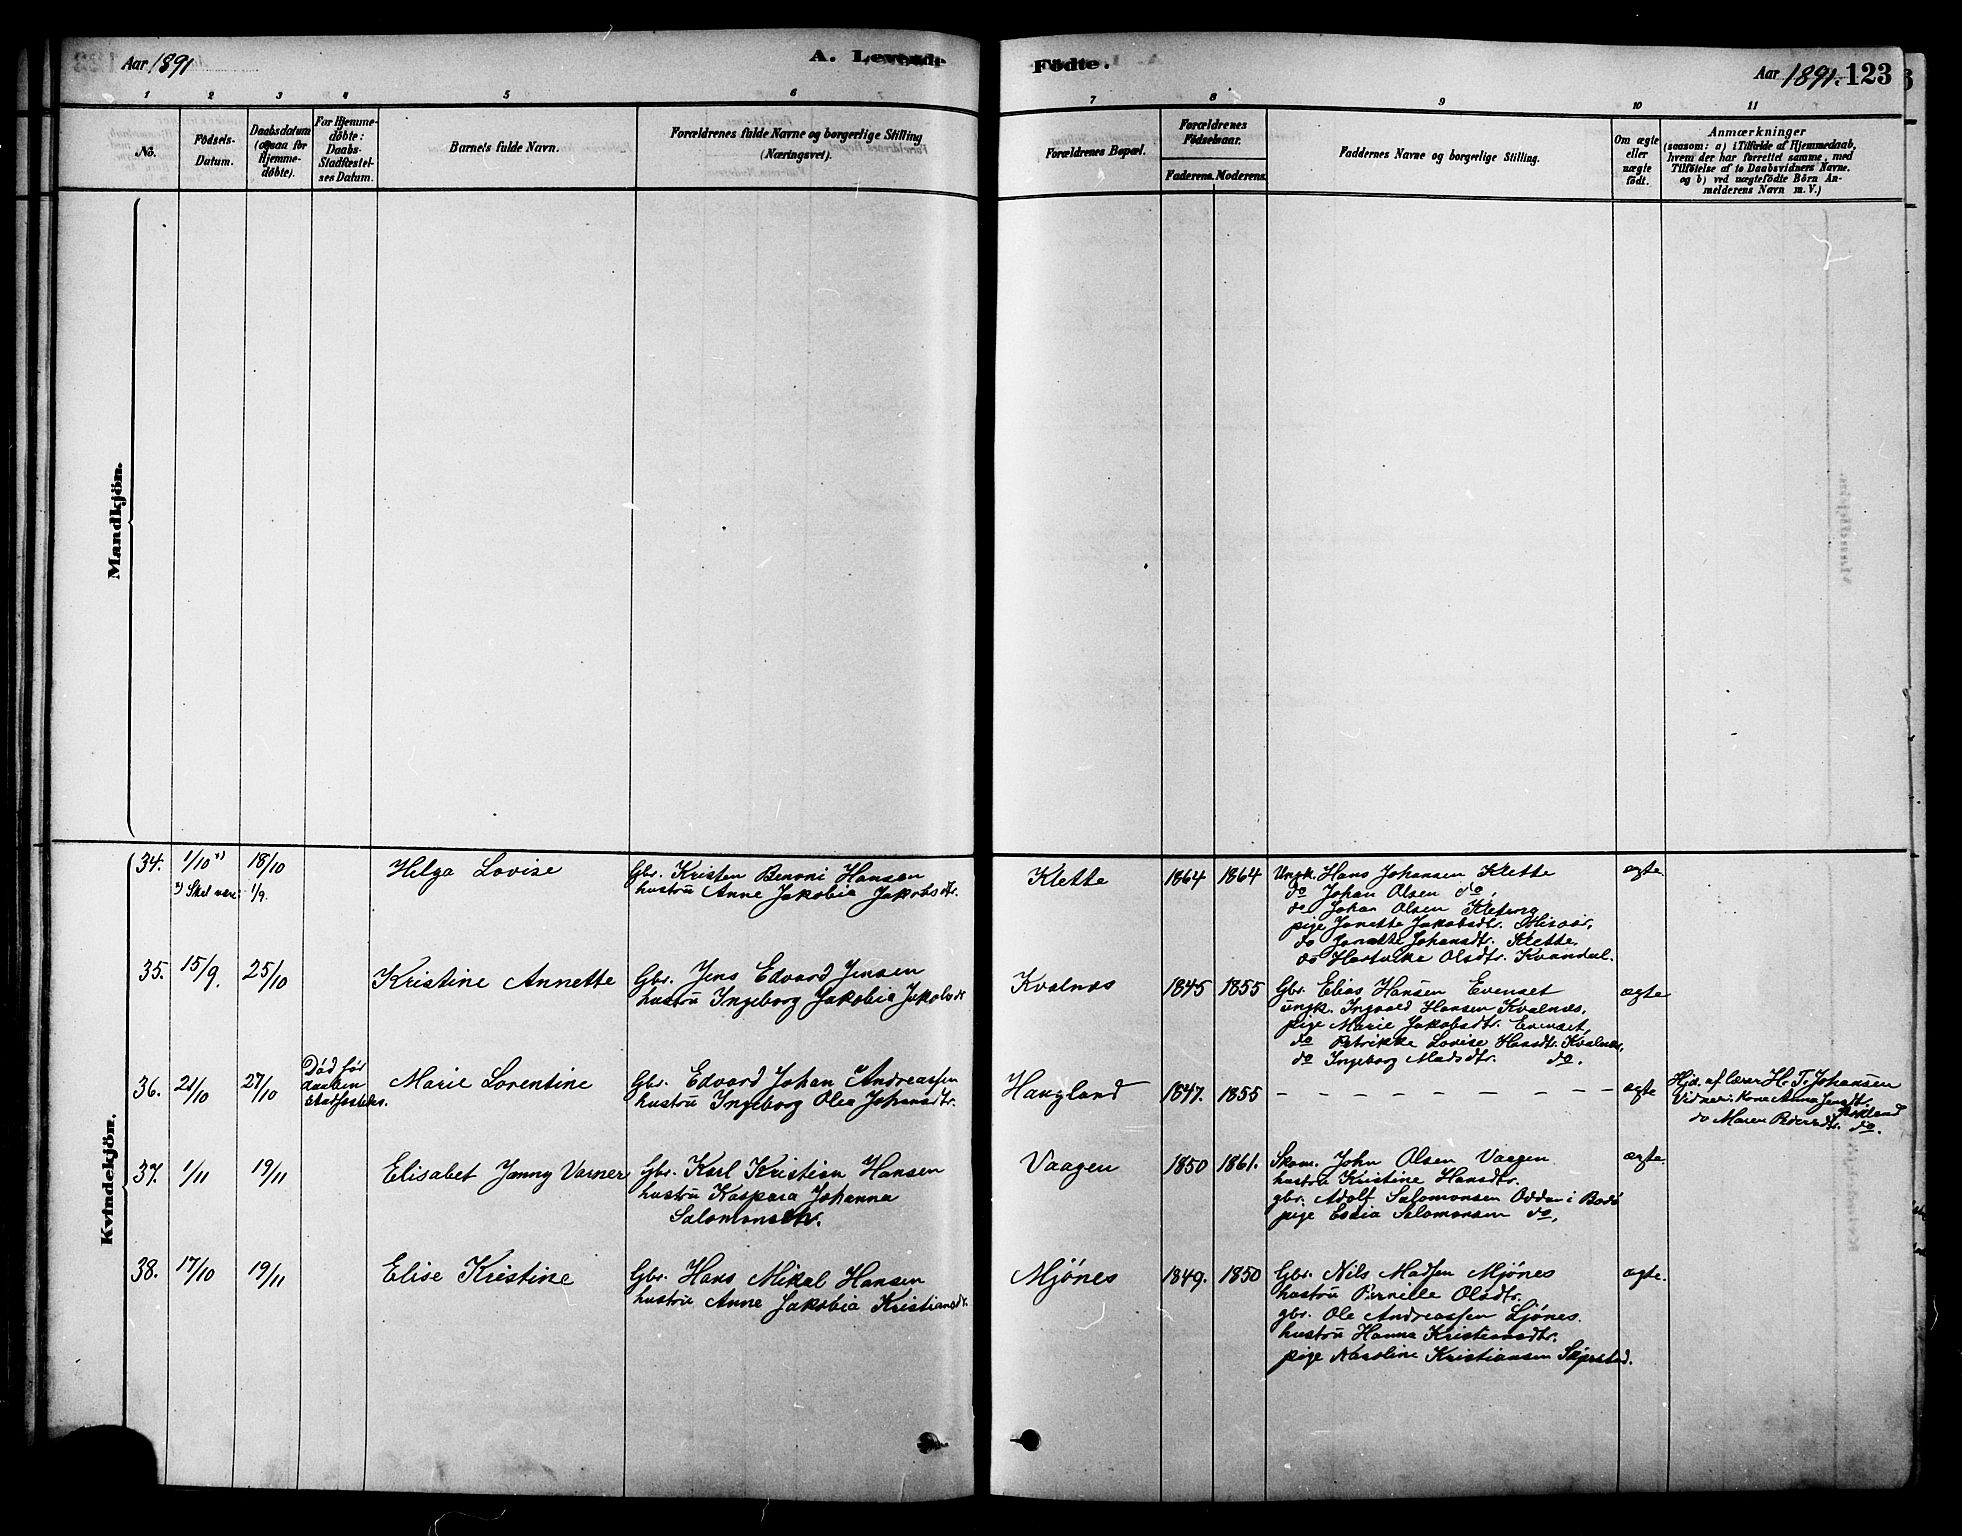 Aar 1891
A. Levende
Födte.
Aar 1891. 123
1 2 3 4 5 6 7 8 9 10 11
No.
Födsels-
Datum.
Daabsdatum
(ogsaa for
Hjemme-
döbte).
For Hjemme-
döbte:
Daabs-
Stadfæstel-
ses Datum.
Barnets fulde Navn.
Forældrenes fulde Navne og borgerlige Stilling
(Næringsvei).
Forældrenes Bopæl.
Forældrenes
Födselsaar.
Faderens. Moderens.
Faddernes Navne og borgerlige Stilling.
Om ægte
eller
uægte
födt.
Anmærkninger
(saasom: a) i Tilfælde af Hjemmedaab,
hvem der har forrettet samme, med
Tilföielse af to Daabsvidners Navne.
og b) ved uægtefödte Börn An-
melderens Navn m. V.)
Mandkjön.
Kvindekjön.
34. 1/10 *) 18/10
*) Skal være: 1/9.
Helga Lovise
Gbr. Kristen Benoni Hansen
hustrü Anne Jakobia Jakobsdtr.
Klette
1864 1864
Ungk. Hans Johansen Klette
do Johan Olsen do.
do Johan Olsen
pige Janette Jakobsdtr.
do Janette Johansdtr. Klette.
do Hartvikke Olsdtr. Kvandal.
ægte
35. 15/9. 25/10
Kristine Annette
Gbr. Jens Edvard Jensen
hustrü Ingeborg Jakobia Jakobsdt
Kvalnæs
1845 1855
Gbr. Elias Hansen Evenset
üngk. Ingvald Hansen Kvalnæs.
pige Marie Jakobsdtr. Evenset,
do Petrikke Lovise Hansdtr. Kvalnæs,
do Ingeborg Madsdtr. do.
ægte
36. 21/10 27/10
Död för
daaben
stadfæstedes.
Marie Lorentine
Gbr. Edvard Johan Andreassen
hustrü Ingeborg Olea Johansdtr.
Haugland
1847. 1855
- - - - - - - - -
ægte
Hjd. af lærer H. T. Johansen
Vidner: Kone Anna Jensdtr.
do Maren Pedersdtr. do.
37. 1/11 19/11
Elisabet Janny Varner
Gbr. Karl Kristian Hansen
hustrü Kaspara Johanna
Salomonsdtr.
Vaagen
1850 1861.
Skom. John Olsen Vaagen
hustrü Kristine Hansdtr.
gbr. Adolf Salomonsen Oddan i Bodö
pige Salomonsen do.
ægte.
38. 17/10 19/11
Elise Kristine
Gbr. Hans Mikal Hansen
hustrü Anne Jakobia Kristiansdt.
Mjönes
1849. 1850
Gbr. Nils Madsen Mjönes
hustrü Pernille Olsdtr.
gbr. Ole Andreassen Ljönes.
hustrü Hanna Kristiansdtr.
pige Karoline Kristiansen
ægte.